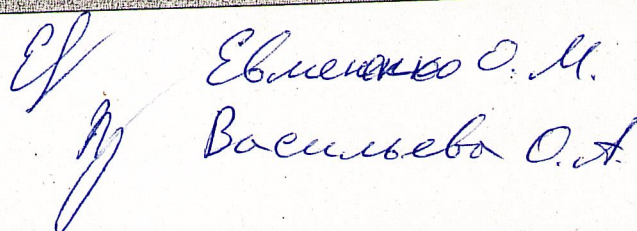 Евмененко О. М.
Васильева О. А.